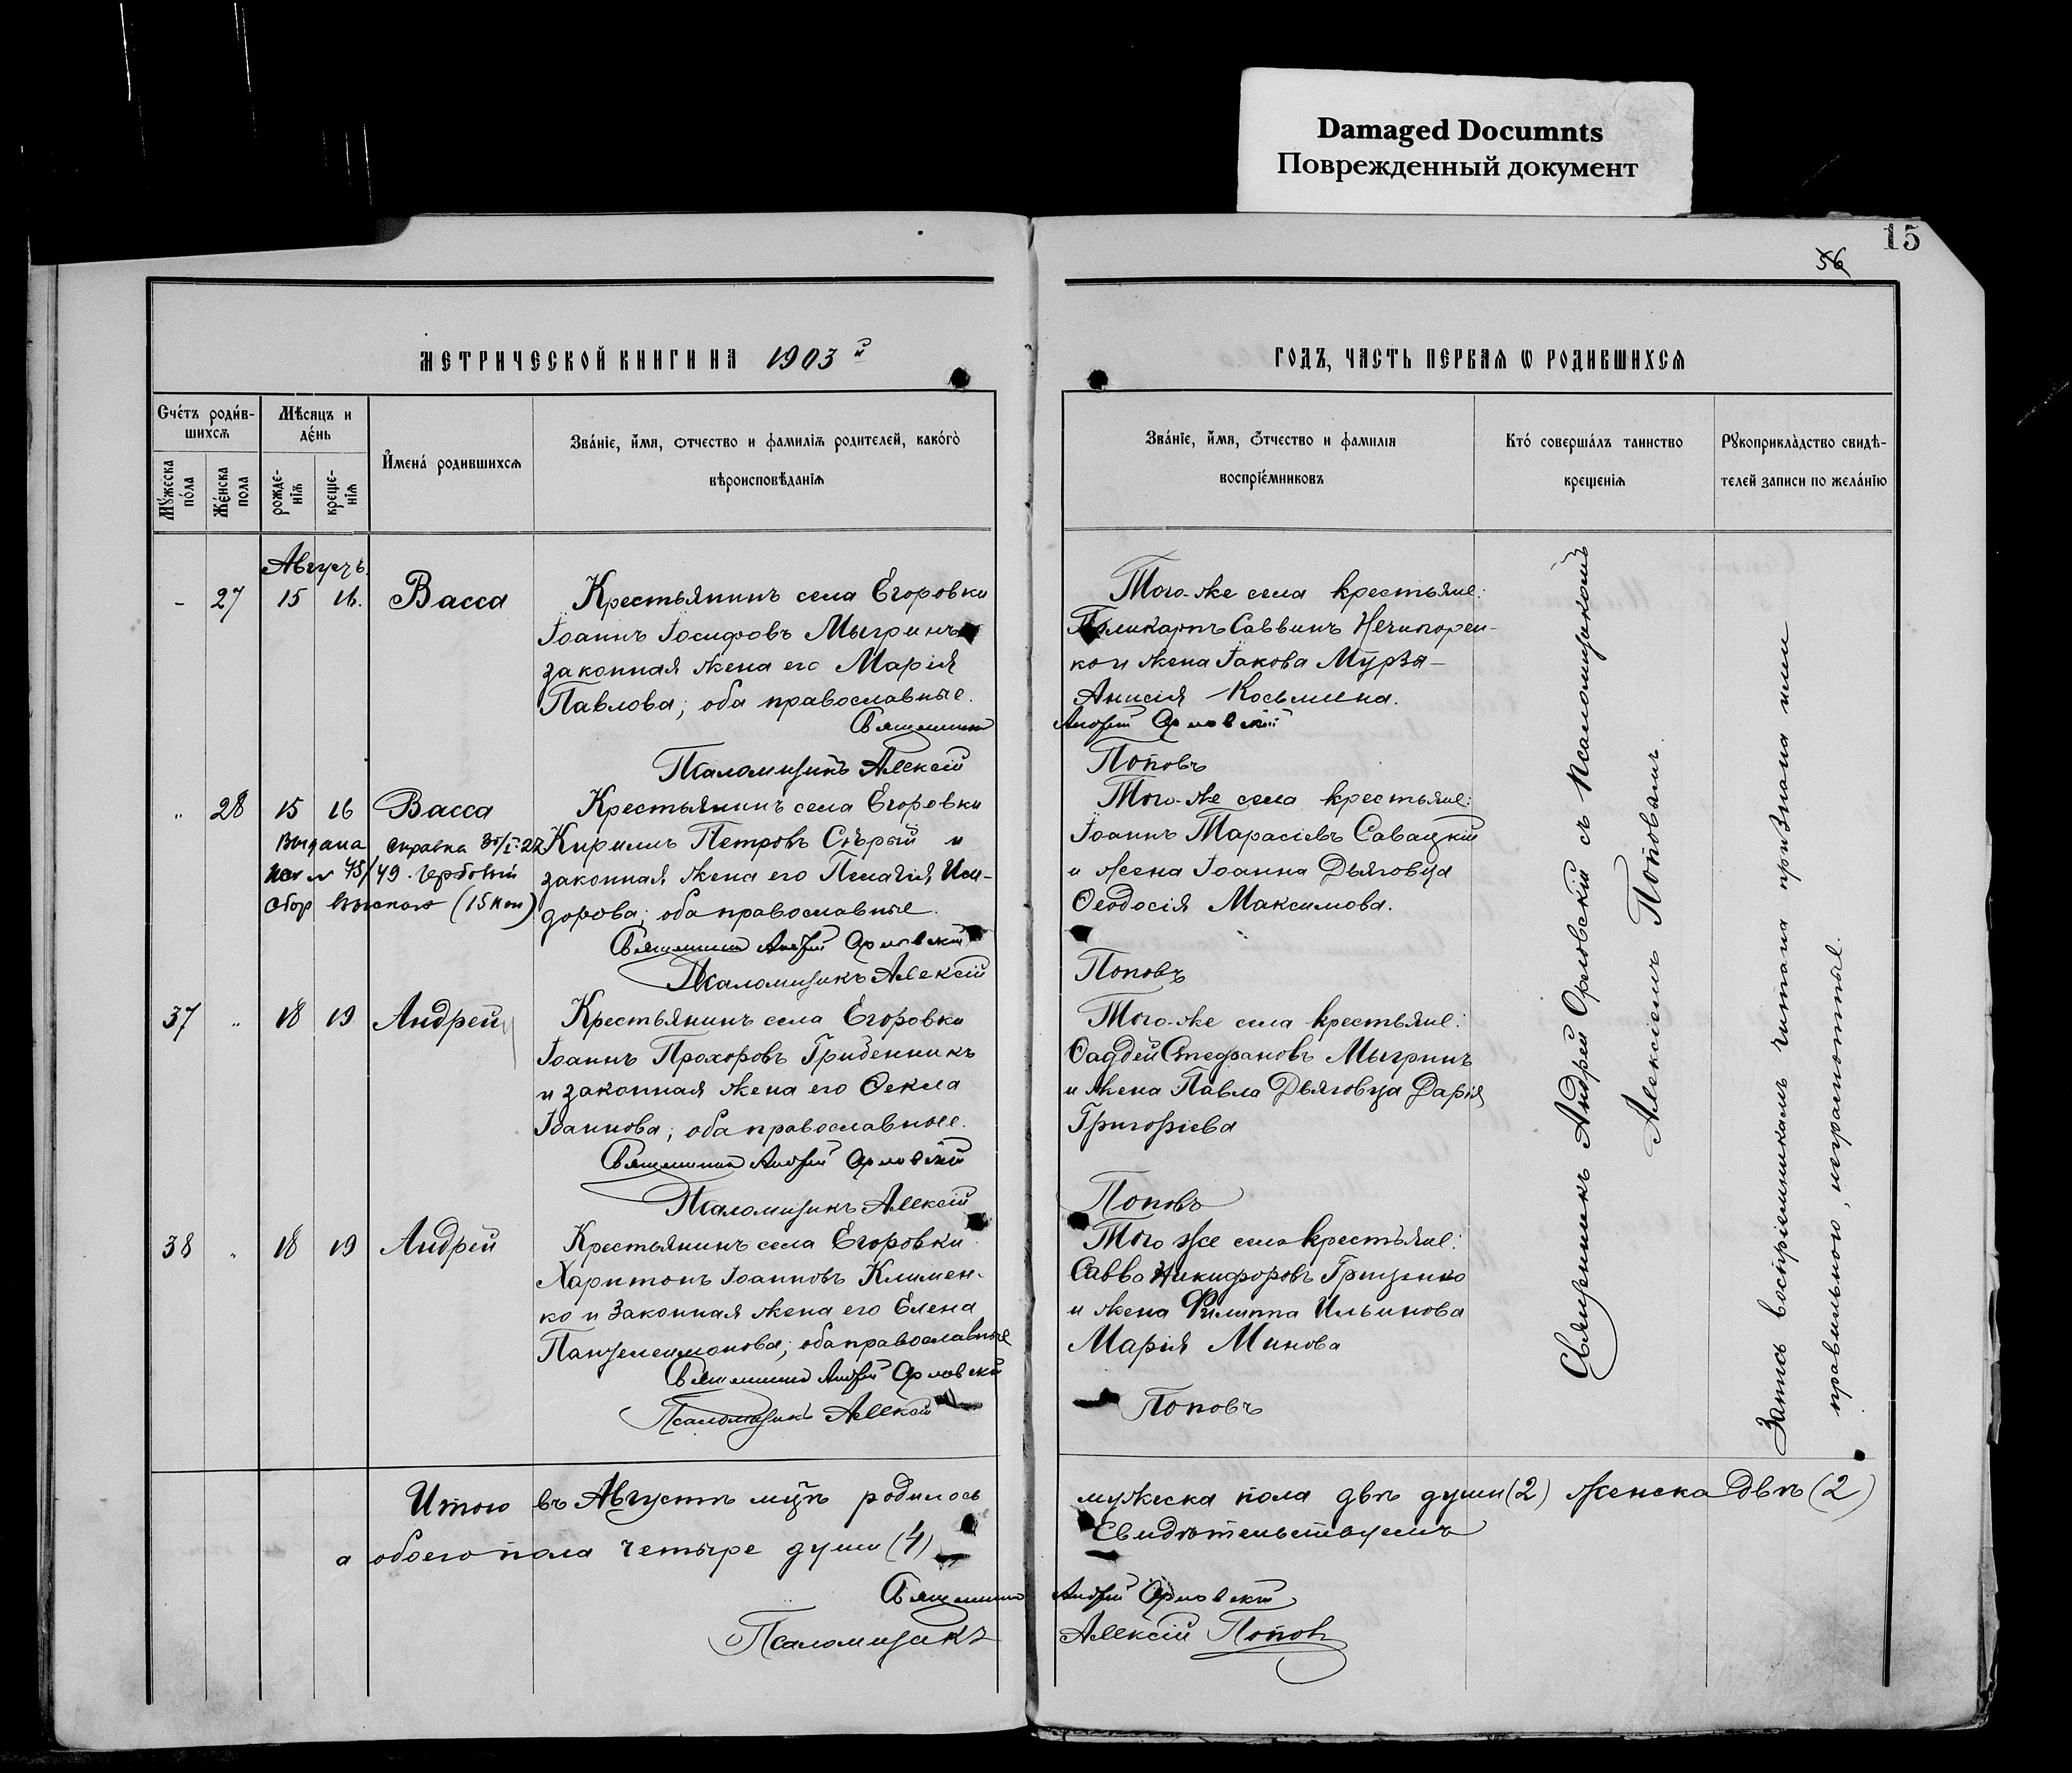 Damaged Documnts
Поврежденный документ
15
56
МЕТРИЧЕСКОЙ КНИГИ НА 1903 й
ГОДЪ, ЧАСТЬ ПЕРВАЯ Ѡ РОДИВШИХСЯ
Счетъ родив-
шихся
Мѣсяцъ и
день
Имена родившихся
Званіе, имя, отчество и фамилія родителей, какого
вѣроисповѣданія
Мужеска
пола
Женска
пола
рожде-
нія
креще-
нія
Званіе, имя, отчество и фамилія
воспріемниковъ
Кто совершалъ таинство
крещенія
Рукоприкладство свидѣ-
телей записи по желанію
Августъ.
- 27 15 16. Васса
Крестьянинъ села Егоровки
Іоаннъ Іосифовъ Мыгринъ
законная жена его Марія
Павлова; оба православные.
Священникъ
Псаломщикъ Алексій
Того-же села крестьяне:
Поликарпъ Саввинъ Нечипорен-
ко и жена Іакова Мурзя-
Анисія Косьмина.
Андрей Орловскій
Поповъ
" 28 15 16 Васса
Выдана справка
45/49. Гербовый
сбор взыскан (15 коп)
Крестьянинъ села Егоровки
Кириллъ Петровъ Сѣрый и
законная жена его Пелагія Иси-
дорова; оба православные.
Священникъ Андрей Орловскій
Псаломщикъ Алексій
Того-же села крестьяне:
Іоаннъ Тарасіевъ Савацкій
и жена Іоанна Дьяговца
Ѳеодосія Максимова.
Поповъ
37 " 18 19 Андрей
Крестьянинъ села Егоровки
Іоаннъ Прохоровъ Гриденникъ
и законная жена его Ѳекла
Іоаннова; оба православные.
Священникъ Андрей Орловскій
Псаломщикъ Алексій
Того-же села крестьяне:
Ѳаддей Стефановъ Мыгринъ
и жена Павла Дьяговца Дарія
Григоріева
Поповъ
38 " 18 19 Андрей
Крестьянинъ села Егоровки
Харитонъ Іоанновъ Климен-
ко и законная жена его Елена
Пантелеимонова; оба православные
Священникъ Андрей Орловскій
Псаломщикъ Алексій
Того же села крестьяне:
Савва Никифоровъ Гриценко
и жена Филиппа Ильинова
Марія Минова
Поповъ
Священникъ Андрей Орловскій съ псаломщикомъ
Алексіемъ Поповымъ.
Запись воспріемникамъ читана признана ими
правильною, неграмотные.
Итого въ Августѣ мцѣ родилось
а обоего пола четыре души (4)
Священникъ
Псаломщикъ
мужеска пола двѣ души (2) женска двѣ (2)
Свидѣтельствуемъ
Андрей Орловскій
Алексій Поповъ